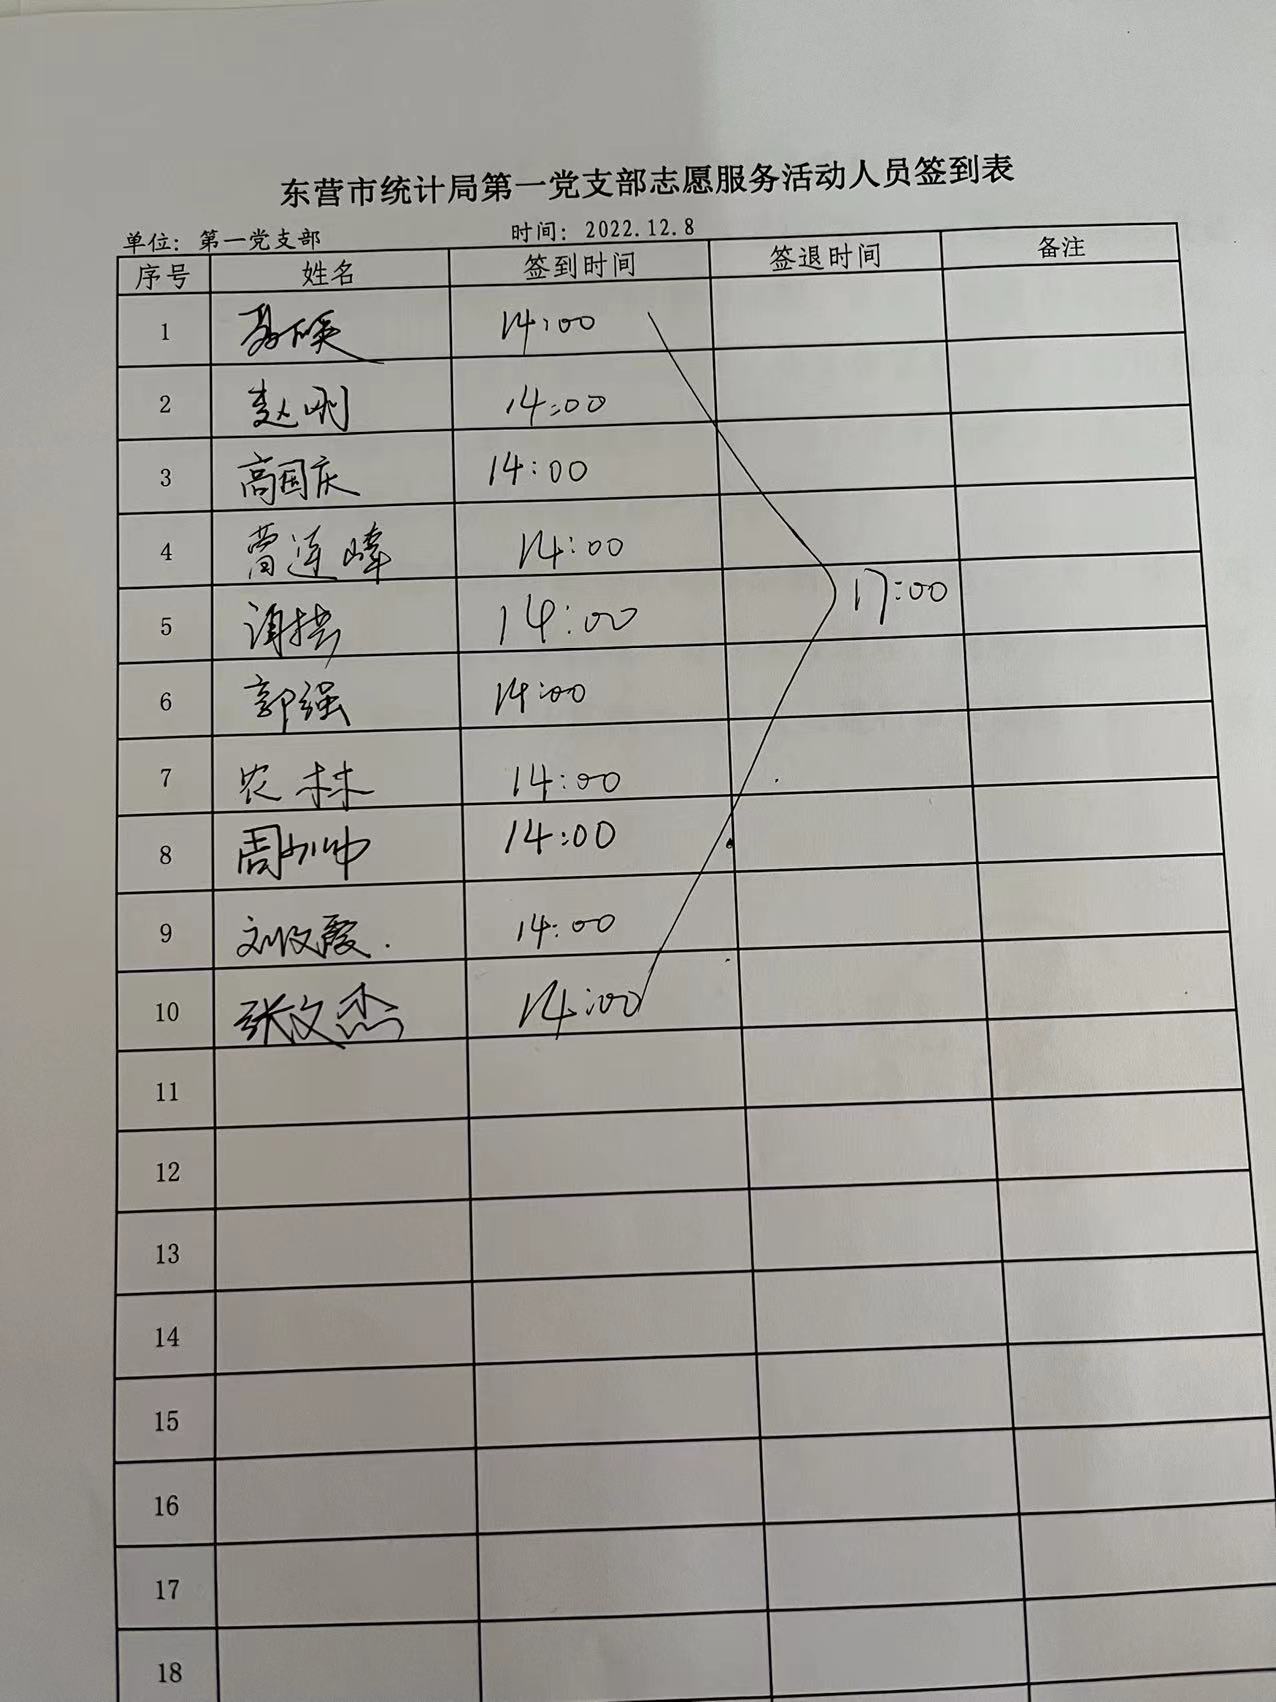 东营市统计局第一党支部志愿服务活动人员签到表
单位：第一党支部 时间：2022.12.8
序号 姓名 签到时间 签退时间 备注
1 14:00
2 赵刚 14:00
3 高国庆 14:00
4 曹连峰 14:00
5 14:00 17:00
6 郭强 14:00
7 农林 14:00
8 周帅帅 14:00
9 刘改霞. 14:00
10 张文杰 14:00
11
12
13
14
15
16
17
18